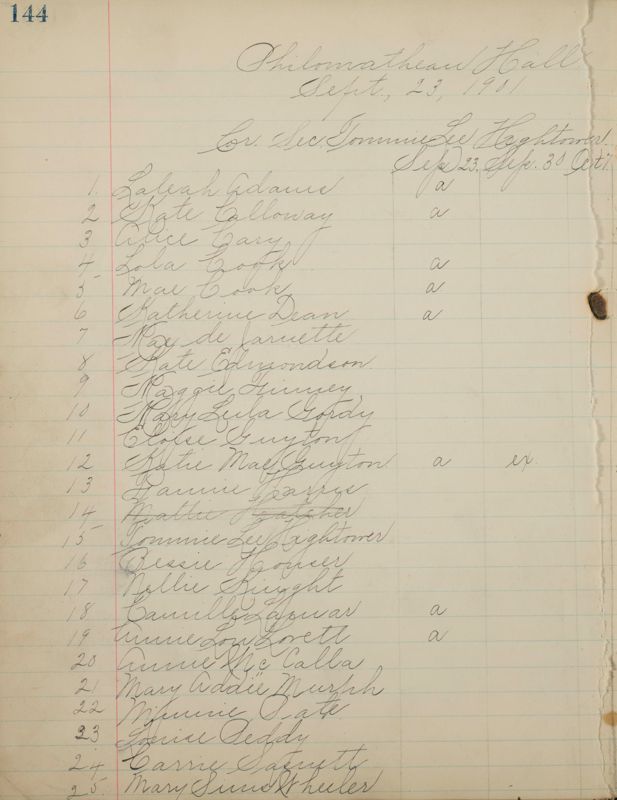 144
Philomathean Hall
Sept., 23, 1901
Cor. Sec. Tommie Lee Hightower.
Sep 23. Sep. 30 Oct 7.
1. Laleah Adams a
2 Kate Calloway a
3 Alice Cary
4 Lola Cook a
5 Mae Cook a
6 Katherine Dean a
7 May de Jarnette
8 Kate Edmondson.
9 Maggie Finney
10 Mary Lula Gordy
11 Eloise Guyton
12 Katie Mae Guyton a ex.
13 Fannie Harris
14 Mattie Hatcher
15 Tommie Lee Hightower
16 Bessie Houser
17 Nellie Knight
18 Camille Lamar a
19 Annie Lou Lovett a
20 Annie McCalla
21 Mary Addie Murph
22 Minnie Pate
23 Louise Peddy
24 Carrie
25 Mary Wheeler